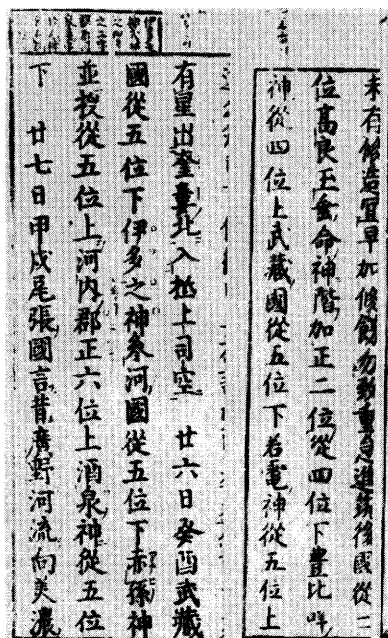 未有修造宜早加修餝勿動重怠進筑後國從三
位高良玉垂命神階加正二位從四位下豊比咩
神從四位上武藏國從五位下若電神從五位上
有星出奎北入上司空 廿六日癸酉武藏
國從五位下伊多之神參河國從五位下赤孫神
並授從五位上河内郡正六位上酒泉神從五位
下 廿七日甲戌尾張國言昔廣野河流向美濃